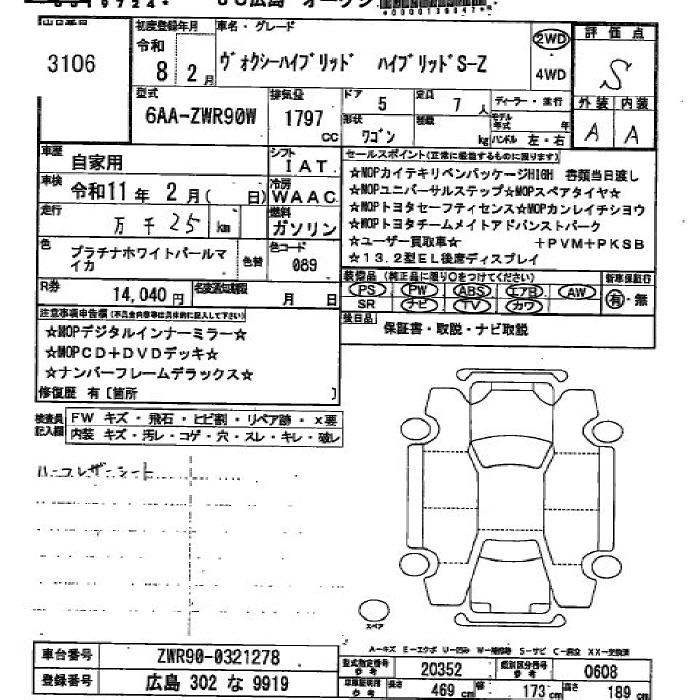 出品番号
3106
初度登録年月
令和
8 2月
車名・グレード
ヴォクシーハイブリッド ハイブリッドS-Z
2WD
4WD
評価点
S
外装 内装
A A
型式
6AA-ZWR90W
排気量
1797
CC
ドア 5
定員 7人
形状 ワゴン
積載 kg
ディーラー・並行
モデル年式 年
ハンドル 左・右
車歴
自家用
シフト
IAT
車検
令和11年 2月( 日)
冷房
WAAC
走行
万 千25 km
燃料
ガソリン
色
プラチナホワイトパールマイカ
色替
色コード
089
R券
14,040円
名変通知期限
月 日
セールスポイント(正常に機能するものに限ります)
★MOPカイテキリペンパッケージHIGH 書類当日渡し
★MOPユニバーサルステップ★MOPスペアタイヤ★
★MOPトヨタセーフティセンス★MOPカンレイチショウ
★MOPトヨタチームメイトアドバンストパーク
★ユーザー買取車★ +PVM+PKSB
★13.2型EL後席ディスプレイ
装備品 (純正品に限り○をつけてください)
PS PW ABS エアB AW
SR ナビ TV カワ
新車保証
有・無
後日品
保証書・取説・ナビ取説
注意事項申告欄(不具合内容等は具体的に記入して下さい)
★MOPデジタルインナーミラー★
★MOPCD+DVDデッキ★
★ナンバーフレームデラックス★
修復歴 有〔箇所
検査員記入欄
FW キズ・飛石・ヒビ割・リペア跡・X要
内装 キズ・汚レ・コゲ・穴・スレ・キレ・破レ
ハーフレザーシート
スペア
A-キズ E-エクボ U-凹み W-補修跡 S-サビ C-腐食 XX-交換済
車台番号
ZWR90-0321278
登録番号
広島 302 な 9919
型式指定番号 参考
20352
類別区分番号 参考
0608
長さ 469 cm
幅 173 cm
高さ 189 cm